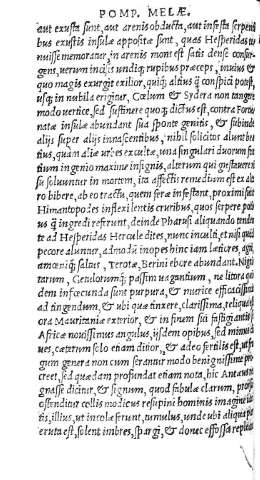 POMP. MELÆ.
aut exusta sunt, aut arenis obducta, aut infesta serpenti
bus exustis insulæ appositæ sunt, quas Hesperidas te
nuisse memoratur, in arenis mons est satis densè consur
gens, uerum incisis undiq; rupibus præceps, inuius &
quo magis exurgit exilior, quiq; altius q̃ conspici potest,
usq; in nubila erigitur, Cœlum & Sydera non tangere
modo uertice, sed sustinere quoq; dictus est, contra Fortu
natæ insulæ abundant sua sponte genitis, & subinde
alijs super alijs innascentibus, nihil solicitos alunt bea
tius, quàm aliæ urbes excultæ, una singulari duorum fon
tium ingenio maximè insignis, alterum qui gustauere ri
su soluuntur in mortem, ita affectis remedium est ex alte
ro bibere, ab eo tractu, quem feræ infestant, proximi sunt
Himantopodes inflexi lentis cruribus, quos serpere poti
us q̃ ingredi referunt, deinde Pharusi aliquando tenden
te ad Hesperidas Hercule dites, nunc inculti, et nisi quod
pecore aluntur, admodũ inopes hinc iam lætiores agri,
amœniq; saltus, Terotæ, Berini ebore abundant. Nigri
tarum, Getulorumq; passim uagantium, ne litora qui
dem infœcunda sunt purpura, & murice efficacissimis
ad tingendum, & ubi quæ tinxere, clarissima, reliqua est
ora Mauritaniæ exterior, & in finem sui fastigantis se
Africæ nouissimus angulus, ijsdem opibus, sed minus di
ues, cæterum solo etiam ditior, & adeo fertilis est, ut fru
gum genera non cum serantur modo benignissimè pro
creet, sed quædam profundat etiam nota, hic Antæus re
gnasse dicitur, & signum, quod fabulæ clarum, prorsus
ostenditur collis modicus resupini hominis imagine iacen
tis, illius, ut incolæ ferunt, tumulus, unde ubi aliqua pars
eruta est, solent imbres, spargi, & donec effossa replean